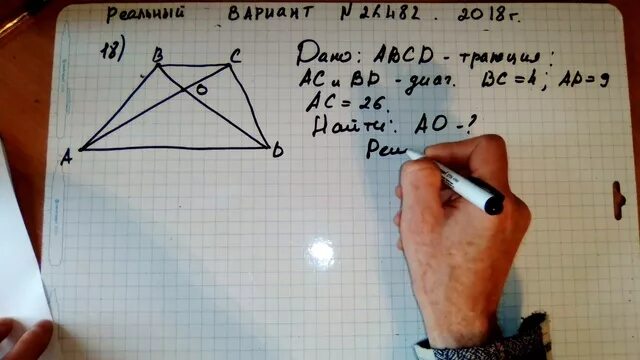 Реальный вариант № 2482. 2018г.
18)
B C
O
A D
Дано: ABCD - трапеция:
AC и BD - диаг. BC = 4; AD = 9
AC = 26.
Найти: AO - ?
Реш